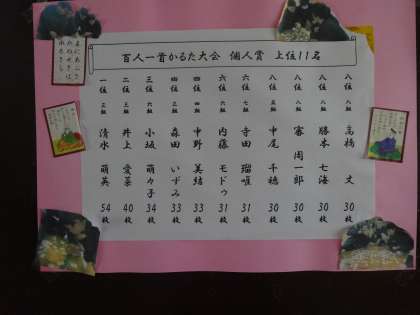 百人一首かるた大会 個人賞 上位11名
一位 三組 清水 萌英 54枚
二位 三組 井上 愛菜 40枚
三位 六組 小坂 萌々子 34枚
四位 四組 森田 いずみ 33枚
四位 四組 中野 美結 33枚
六位 六組 内藤 モドゥ 31枚
六位 七組 寺田 瑠唯 31枚
八位 八組 中尾 千穂 30枚
八位 周一郎 30枚
八位 八組 勝本 七海 30枚
八位 八組 高橋 丈 30枚